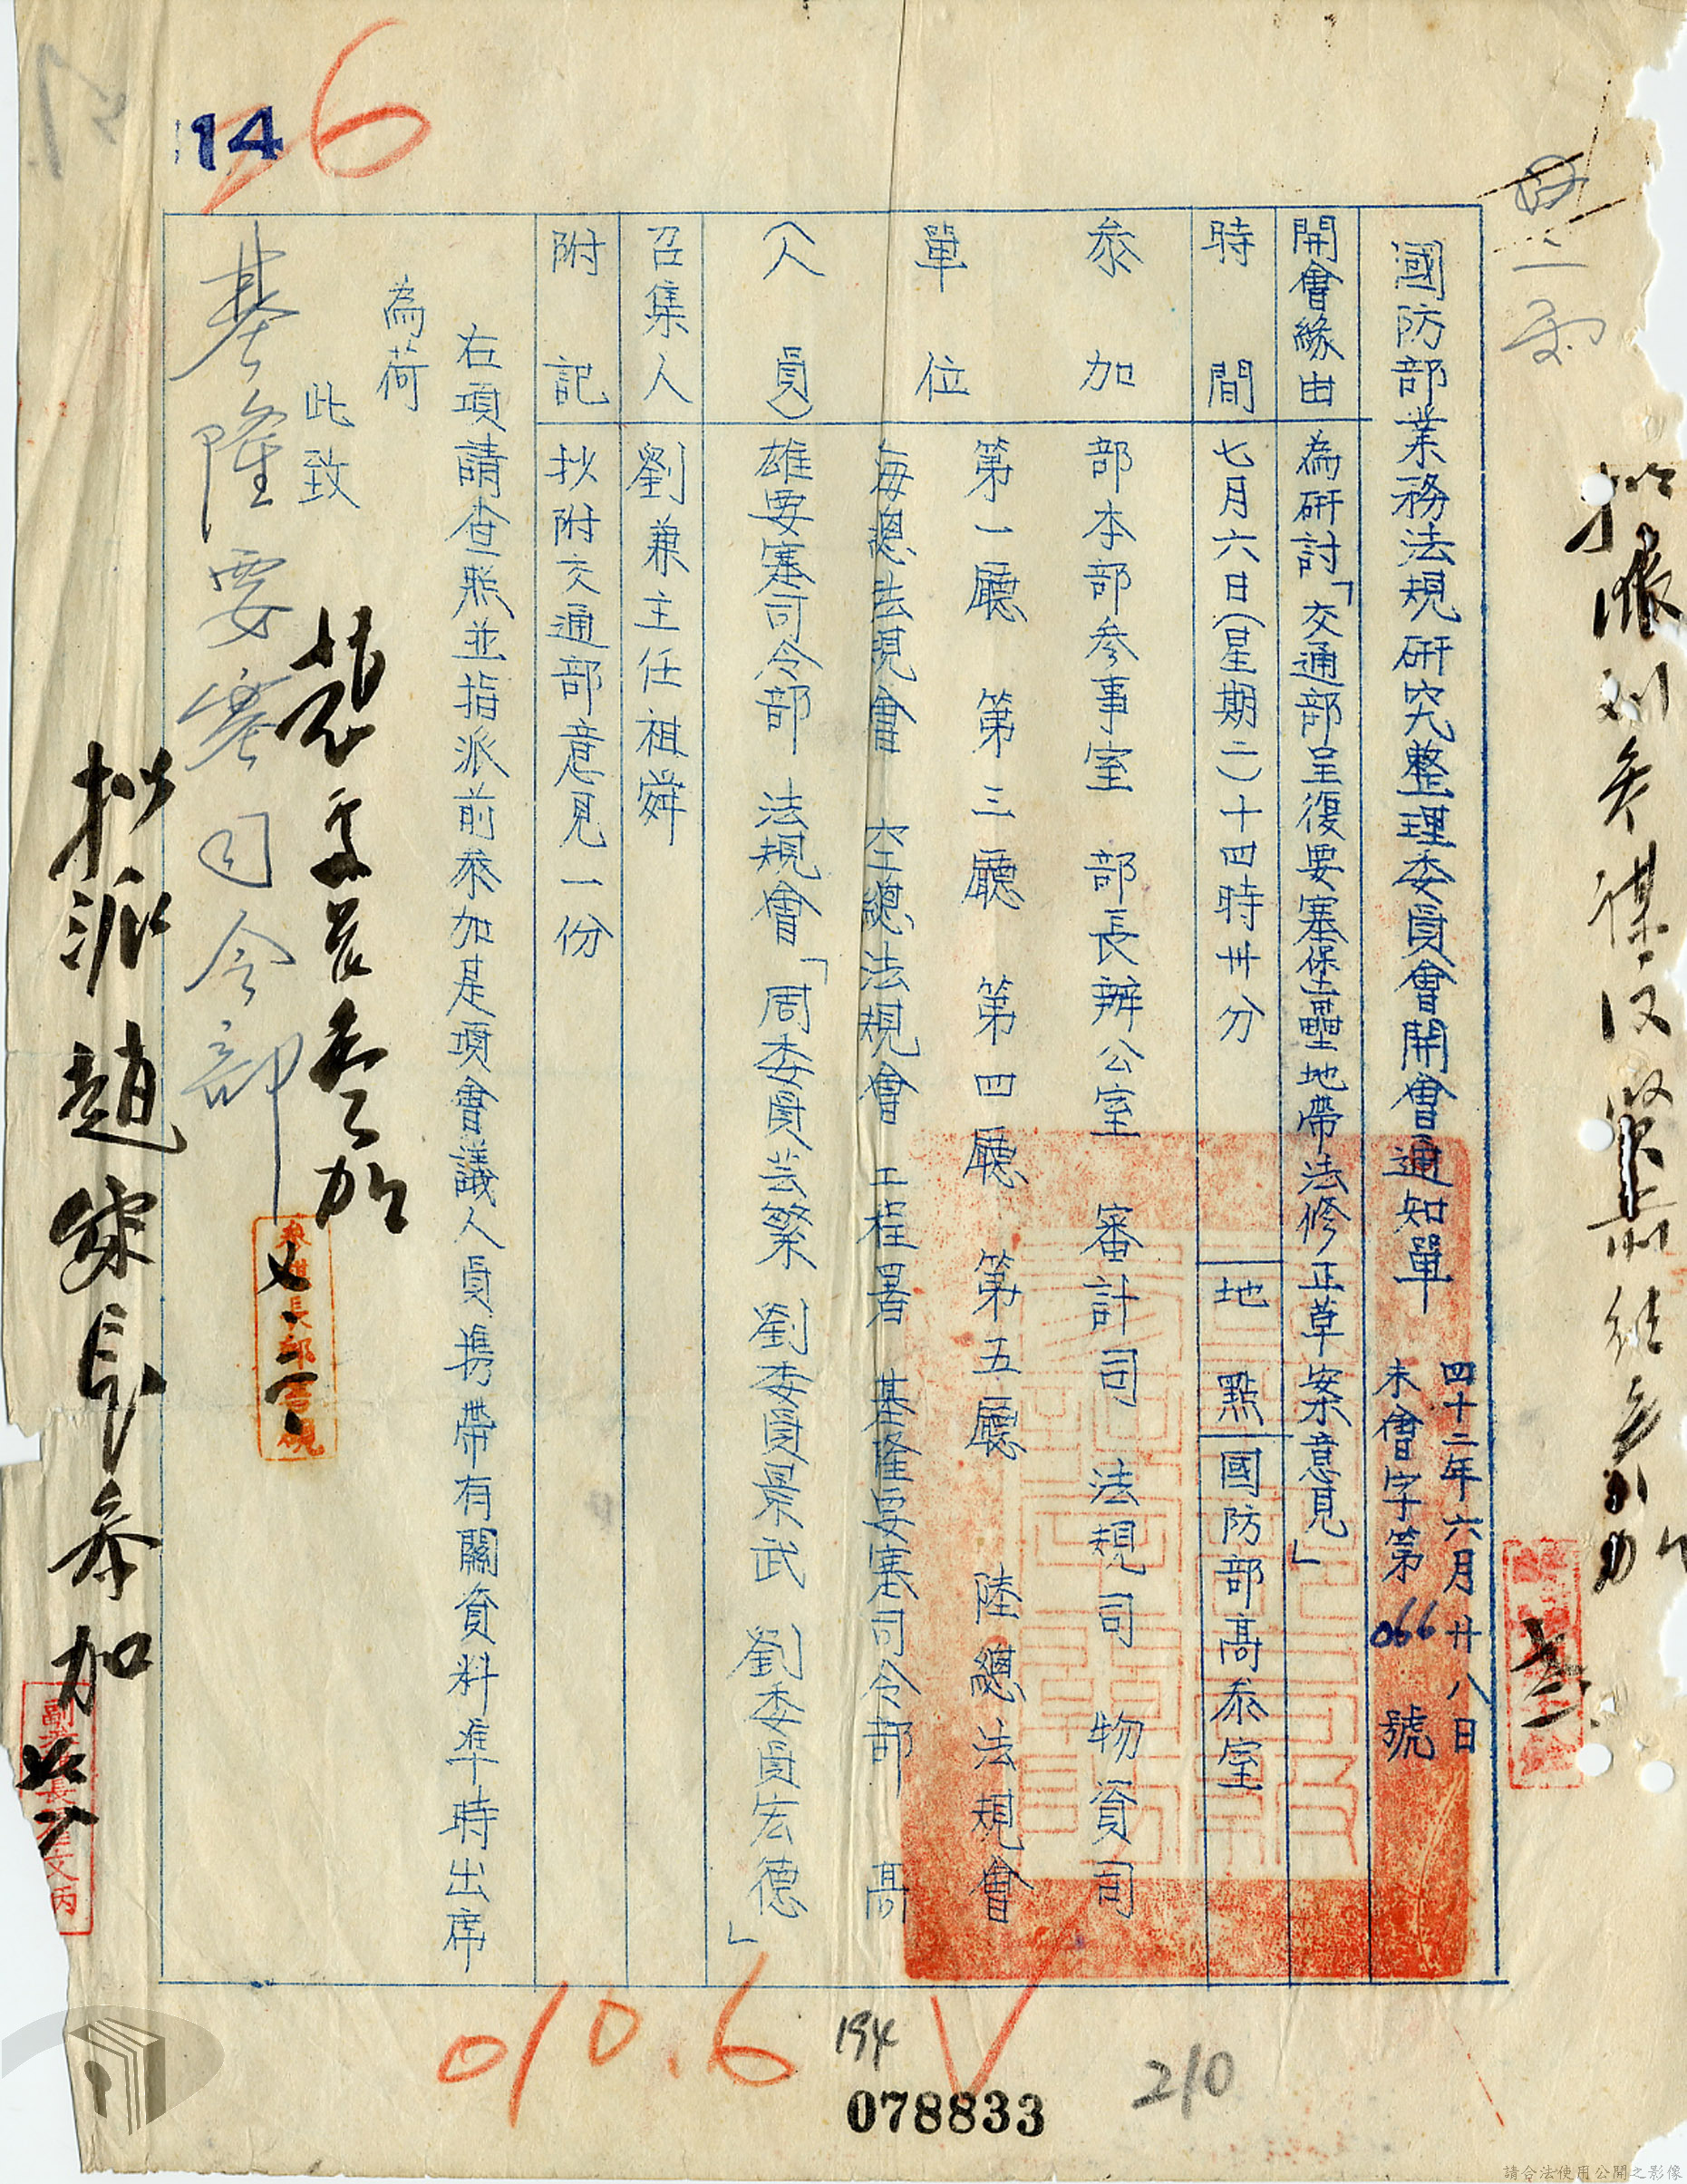 國防部業務法規研究整理委員會開會通知單
四十二年六月廿八日
未會字第066號
開會緣由 為研討「交通部呈復要塞堡壘地帶法修正草案意見」
時間 七月六日(星期二)十四時卅分 地點 國防部高參室
參加 部本部參事室 部長辦公室 審計司 法規司 物資司
第一廳 第三廳 第四廳 第五廳 陸總法規會
單位
海總法規會 空總法規會 工程署 基隆要塞司令部 高
(人員) 雄要塞司令部 法規會「周委員芸繁 劉委員景武 劉委員宏德」
召集人 劉兼主任祖舜
附記 抄附交通部意見一份
右項請查照並指派前參加是項會議人員攜帶有關資料準時出席
為荷
此致
基隆要塞司令部
參加
七.二
擬派趙 長參加
14
6
010.6
194
078833
210
請合法使用公開之影像